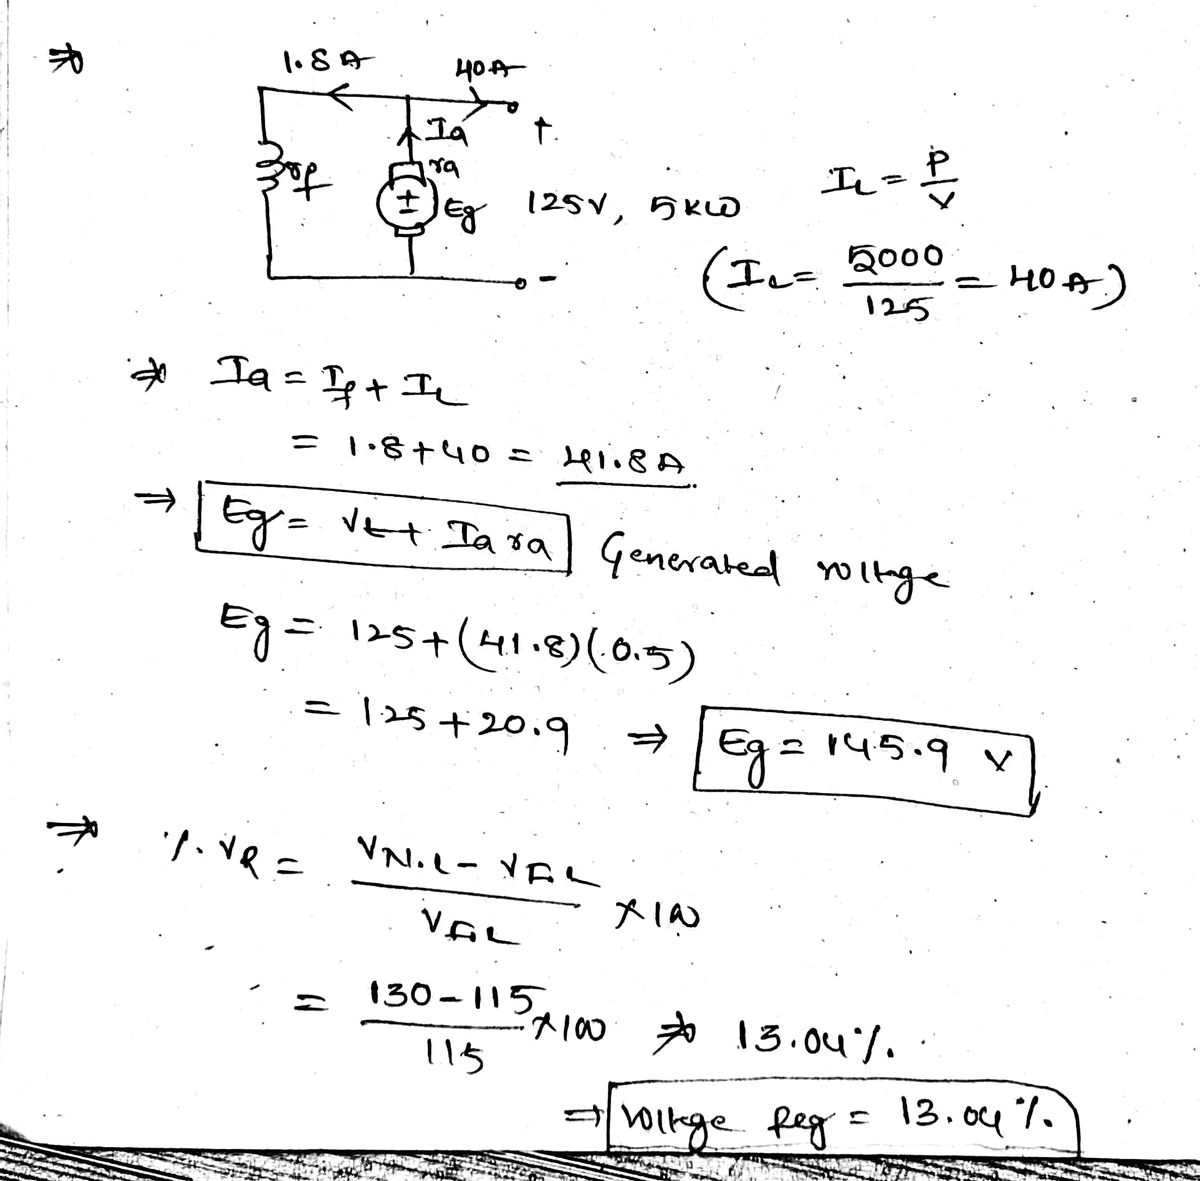 ⇒
1.8A 40A
Ia +
ra
rf ± Eg 125V, 5KW IL = P/V
(IL = 5000/125 = 40A)
-
⇒ Ia = If + IL
= 1.8+40 = 41.8A
⇒ Eg = Vt + Ia ra Generated voltage
Eg = 125+(41.8)(0.5)
= 125+20.9 ⇒ Eg = 145.9 V
⇒ %VR = VN.L - VFL / VFL ×100
= 130-115 / 115 ×100 ⇒ 13.04%.
⇒ Voltage Reg = 13.04%.